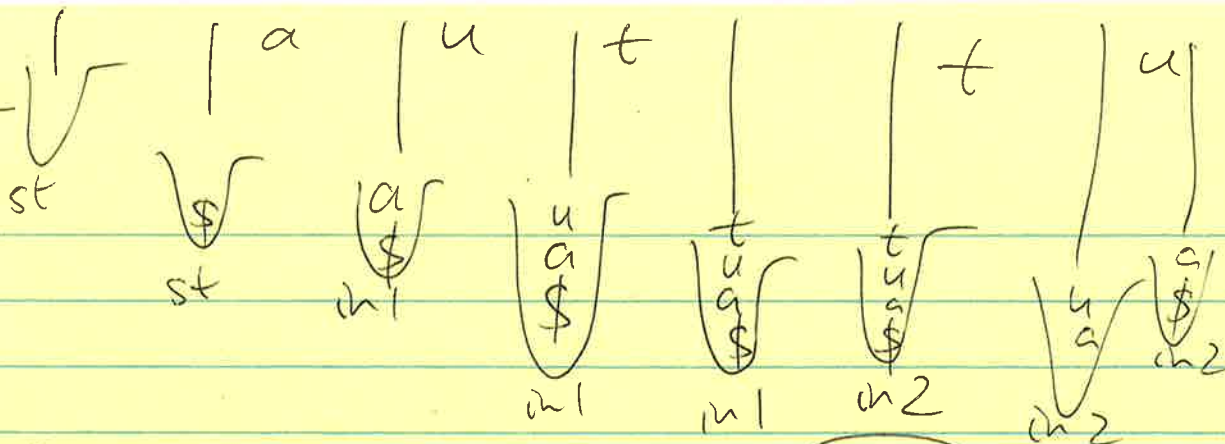 a u t t u
st
$
st
a
$
in1
u
a
$
in1
t
u
a
$
in1
t
u
a
$
in2
u
a
in2
a
$
in2